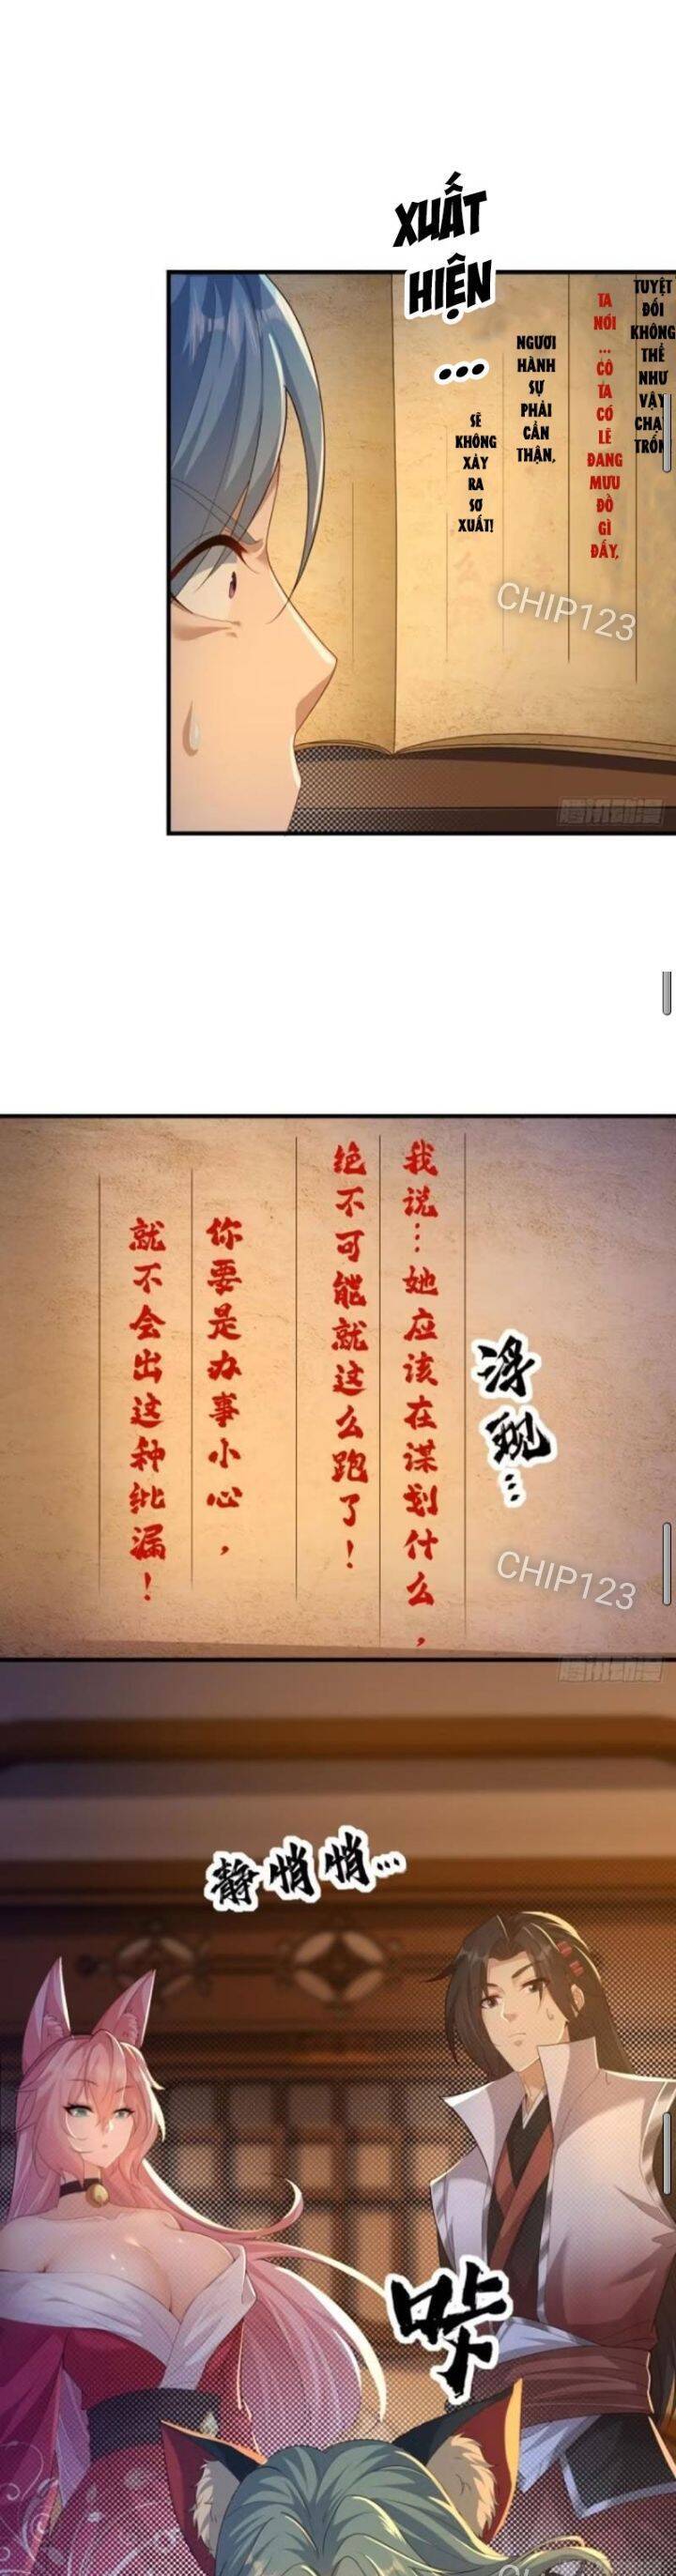 XUẤT
HIỆN
...
TUYỆT
ĐỐI
KHÔNG
THỂ
NHƯ
VẬY
CHẠY
TRỐN
TA
NÓI
...
CÔ
TA
CÓ
LẼ
ĐANG
MƯU
ĐỒ
GÌ
ĐẤY,
NGƯƠI
HÀNH
SỰ
PHẢI
CẨN
THẬN,
SẼ
KHÔNG
XẢY
RA
SƠ
XUẤT!
CHIP123
腾讯动漫
浮现…
我说…她应该在谋划什么，
绝不可能就这么跑了！
你要是办事小心，
就不会出这种纰漏！
CHIP123
腾讯动漫
静悄悄…
咔